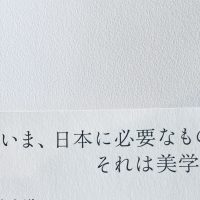 いま、日本に必要なもの
それは美学